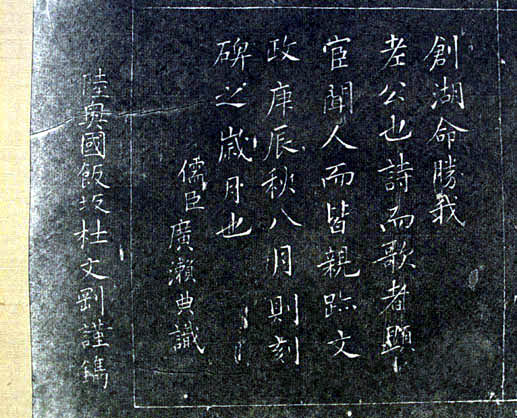 創湖命勝我
老公也詩而歌者顯
宦聞人而皆親跡文
政庚辰秋八月則刻
碑之歲月也
儒臣廣瀨典識
陸奥國飯坂杜文剛謹鐫